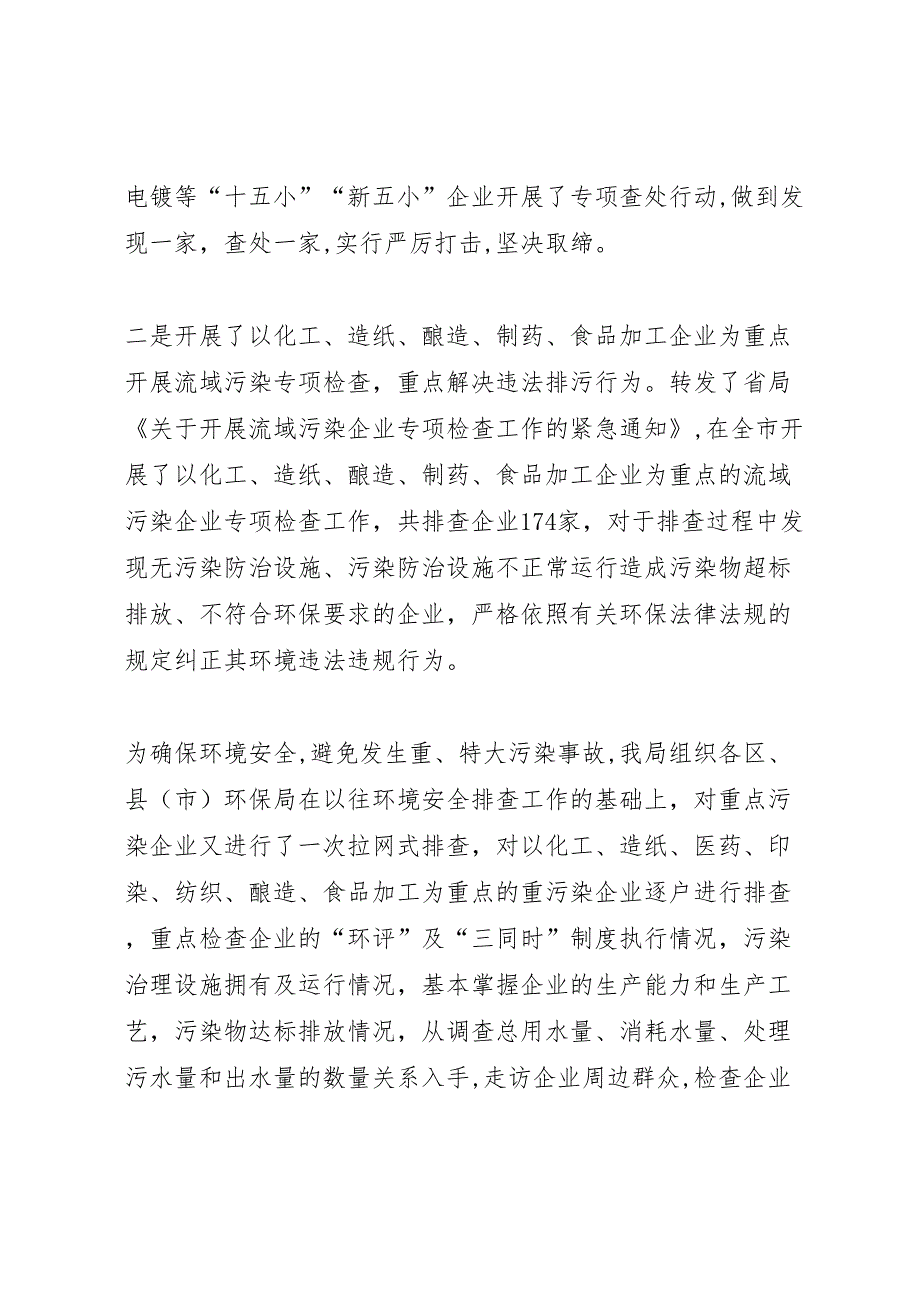 电镀等“十五小”“新五小”企业开展了专项查处行动,做到发
现一家，查处一家,实行严厉打击,坚决取缔。
二是开展了以化工、造纸、酿造、制药、食品加工企业为重点
开展流域污染专项检查，重点解决违法排污行为。转发了省局
《关于开展流域污染企业专项检查工作的紧急通知》,在全市开
展了以化工、造纸、酿造、制药、食品加工企业为重点的流域
污染企业专项检查工作，共排查企业174家，对于排查过程中发
现无污染防治设施、污染防治设施不正常运行造成污染物超标
排放、不符合环保要求的企业，严格依照有关环保法律法规的
规定纠正其环境违法违规行为。
为确保环境安全,避免发生重、特大污染事故,我局组织各区、
县（市）环保局在以往环境安全排查工作的基础上，对重点污
染企业又进行了一次拉网式排查，对以化工、造纸、医药、印
染、纺织、酿造、食品加工为重点的重污染企业逐户进行排查
，重点检查企业的“环评”及“三同时”制度执行情况，污染
治理设施拥有及运行情况，基本掌握企业的生产能力和生产工
艺，污染物达标排放情况，从调查总用水量、消耗水量、处理
污水量和出水量的数量关系入手,走访企业周边群众,检查企业